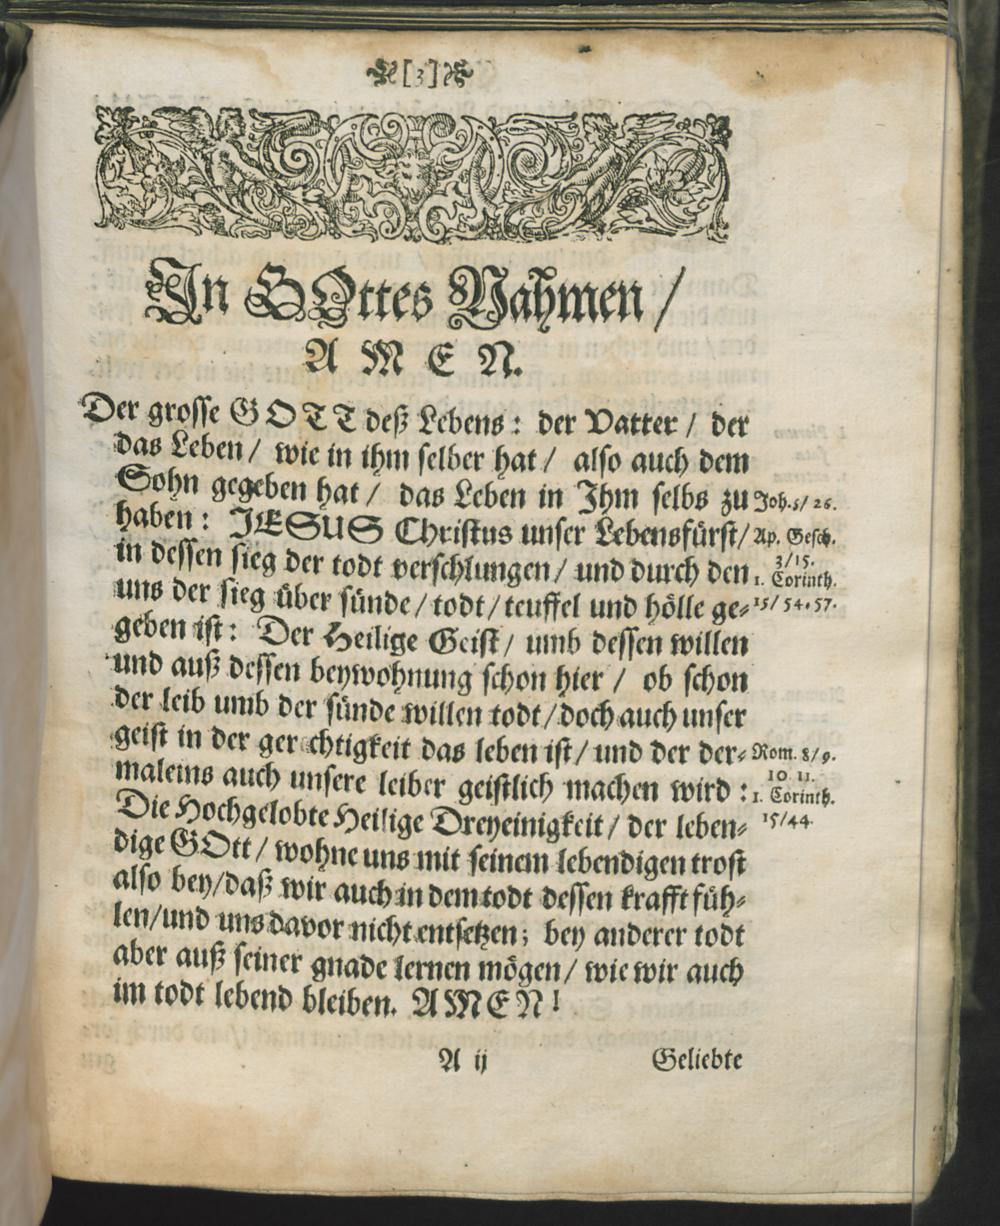 [3]
In GOttes Nahmen /
AMEN.
Der grosse GOTT deß Lebens : der Vatter / der
das Leben / wie in ihm selber hat / also auch dem
Sohn gegeben hat / das Leben in Ihm selbs zu Joh. 5/ 26.
haben : JESUS Christus unser Lebensfürst/ Ap. Gesch.
3/15.
in dessen sieg der todt verschlungen / und durch den 1. Corinth.
uns der sieg über sünde / todt / teuffel und hölle ge- 15/ 54. 57.
geben ist : Der Heilige Geist / umb dessen willen
und auß dessen beywohnung schon hier / ob schon
der leib umb der sünde willen todt / doch auch unser
geist in der gerechtigkeit das leben ist / und der der- Rom. 8/ 9.
10 11.
maleins auch unsere leiber geistlich machen wird : 1. Corinth.
15/44.
Die Hochgelobte Heilige Dreyeinigkeit / der leben-
dige GOtt / wohne uns mit seinem lebendigen trost
also bey/daß wir auch in dem todt dessen krafft füh-
len/und uns davor nicht entsetzen; bey anderer todt
aber auß seiner gnade lernen mögen / wie wir auch
im todt lebend bleiben. AMEN!
A ij Geliebte